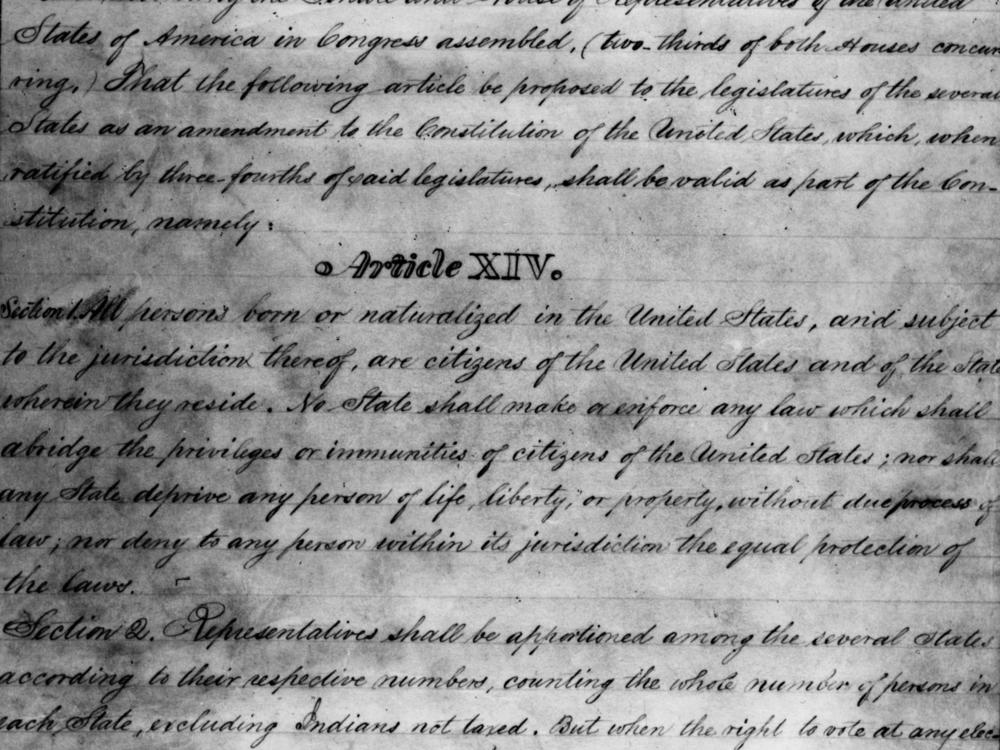 the Senate and House of Representatives of the United
States of America in Congress assembled, (two-thirds of both Houses concur
ring,) That the following article be proposed to the legislatures of the several
States as an amendment to the Constitution of the United States, which, when
ratified by three-fourths of said legislatures, shall be valid as part of the Con-
stitution, namely:
Article XIV.
Section 1. All persons born or naturalized in the United States, and subject
to the jurisdiction thereof, are citizens of the United States and of the State
wherein they reside. No State shall make or enforce any law which shall
abridge the privileges or immunities of citizens of the United States; nor shall
any State deprive any person of life, liberty, or property, without due process of
law; nor deny to any person within its jurisdiction the equal protection of
the laws.
Section 2. Representatives shall be apportioned among the several States
according to their respective numbers, counting the whole number of persons in
each State, excluding Indians not taxed. But when the right to vote at any elec